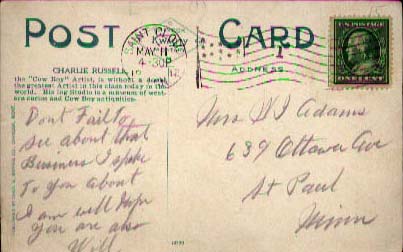 POST CARD
SAINT CLOUD
MAY 11
4-30P
ADDRESS
U.S. POSTAGE
ONE CENT
CHARLIE RUSSELL
the "Cow Boy" Artist, is without a doubt
the greatest Artist in this class today in the
world. His log Studio is a museum of west-
ern curios and Cow Boy antiquities.
Dont Fail to
see about that
Business I spoke
To You about
I am well Hope
You are also
Will
Mrs W I Adams
639 Ottawa Ave
St Paul
Minn